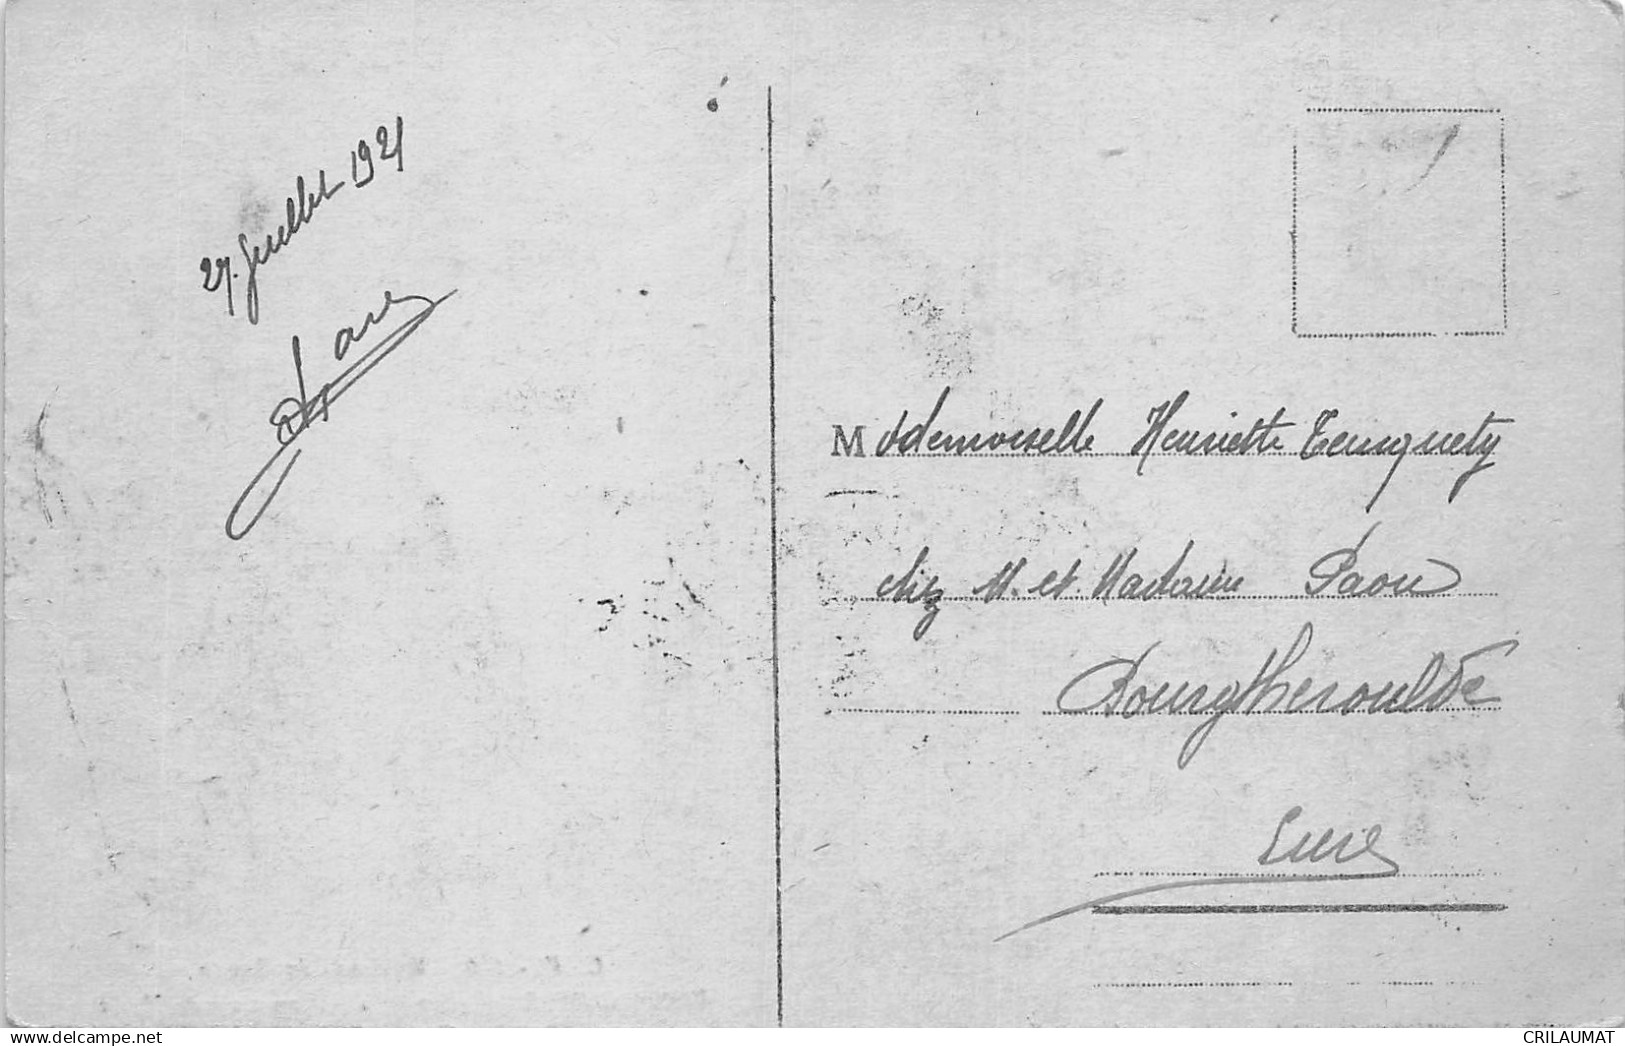 27. Juillet 1921
Mademoiselle Henriette
chez M. et. Madame Paou
Bourgtheroulde
Eure
www.delcampe.net
CRILAUMAT